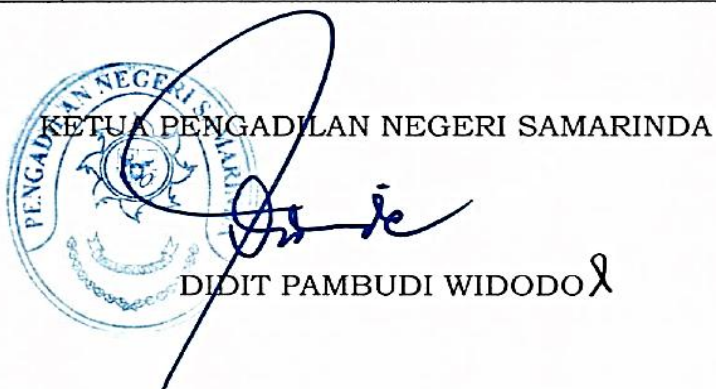 KETUA PENGADILAN NEGERI SAMARINDA
PENGADILAN NEGERI SAMARINDA
DIDIT PAMBUDI WIDODO